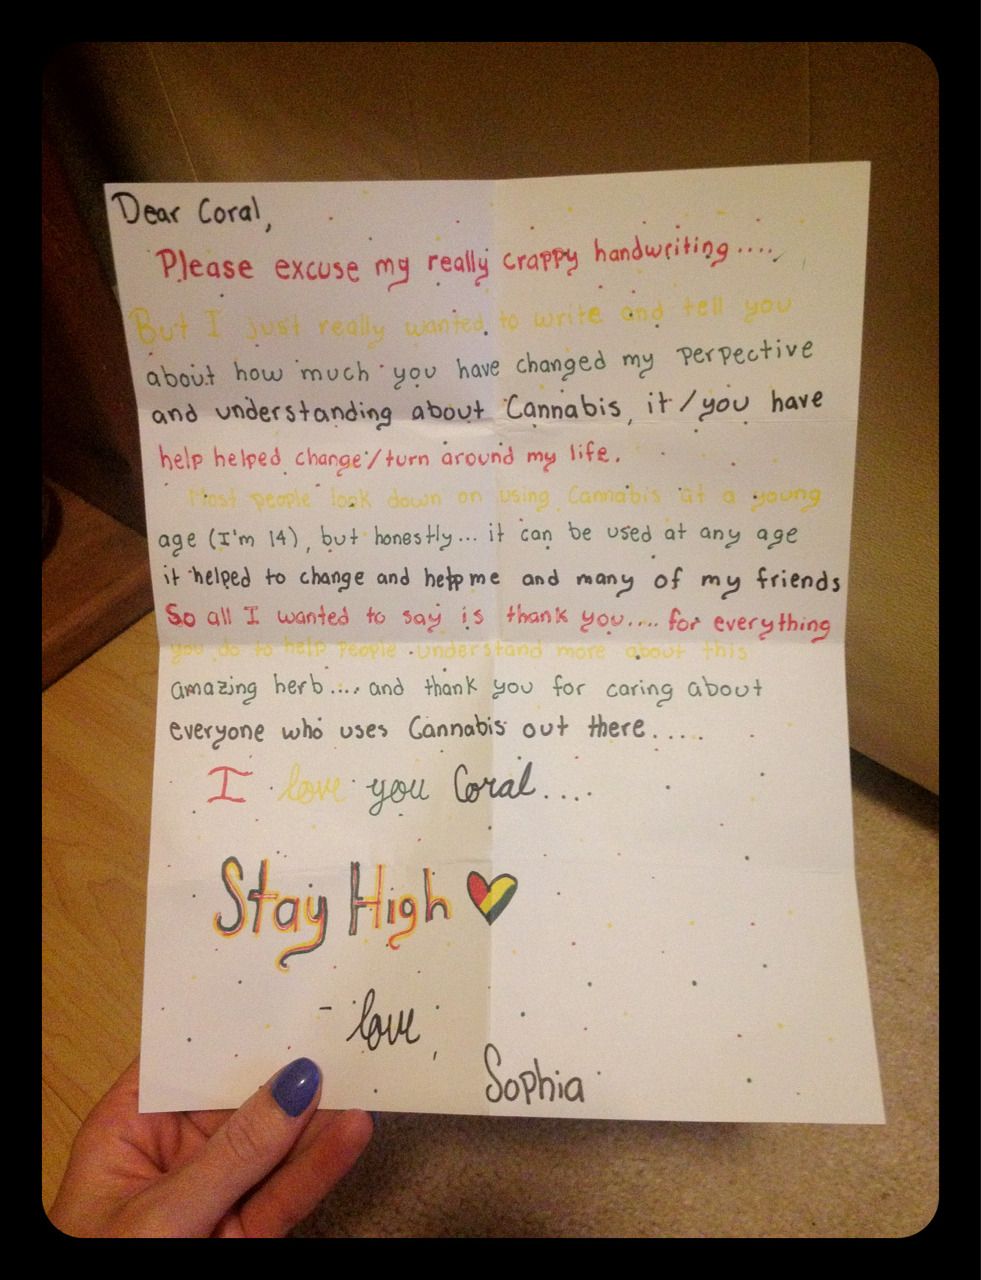 Dear Coral,
Please excuse my really crappy handwriting....
But I just really wanted to write and tell you
about how much you have changed my perpective
and understanding about Cannabis, it/you have
help helped change/turn around my life.
Most people look down on using Cannabis at a young
age (I'm 14), but honestly... it can be used at any age
it helped to change and help me and many of my friends
So all I wanted to say is thank you.... for everything
you do to help people understand more about this
amazing herb.... and thank you for caring about
everyone who uses Cannabis out there.....
I love you Coral....
Stay High
- love,
Sophia